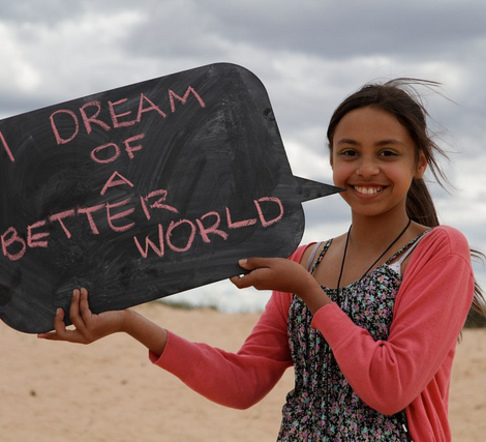 I DREAM
OF
A
BETTER
WORLD